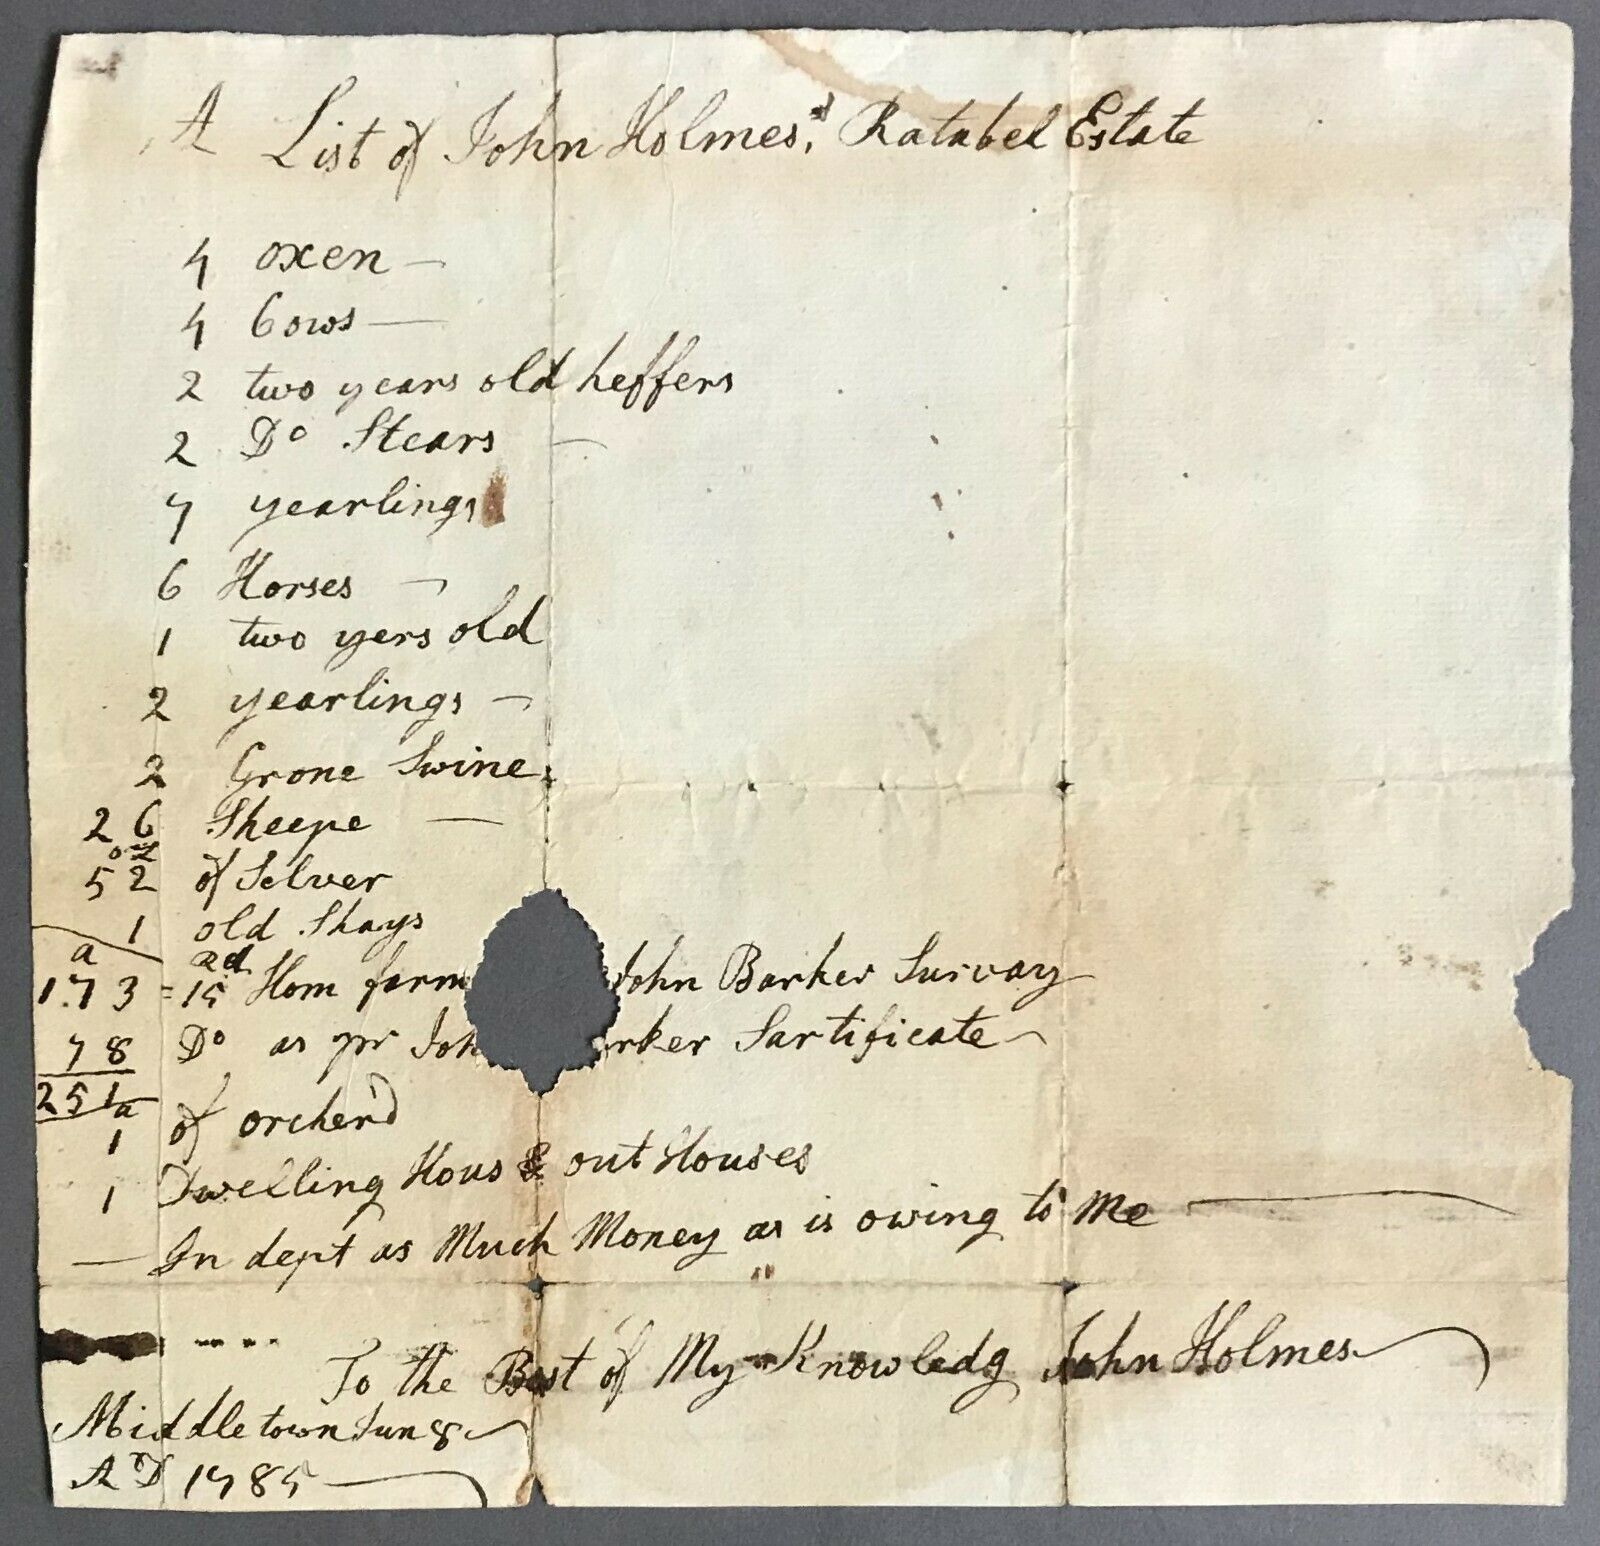 A List of John Holmes,s Ratabel Estate
4 oxen —
4 Cows —
2 two years old heffers
2 Do Stears —
7 yearlings
6 Horses —
1 two yers old
2 yearlings —
2 Grone Swine
26 Sheepe —
oz
52 of Selver
1 old Shays
a rd
173 = 15 Hom farm John Barker Survay
78 Do as pr Joh rker Sartificate
251a
1 of orcherd
1 Dwelling Hous & out Houses
— In dept as Much Money as is owing to Me —
To the Best of My Knowledg John Holmes
Middletown Jun 8
AD 1785